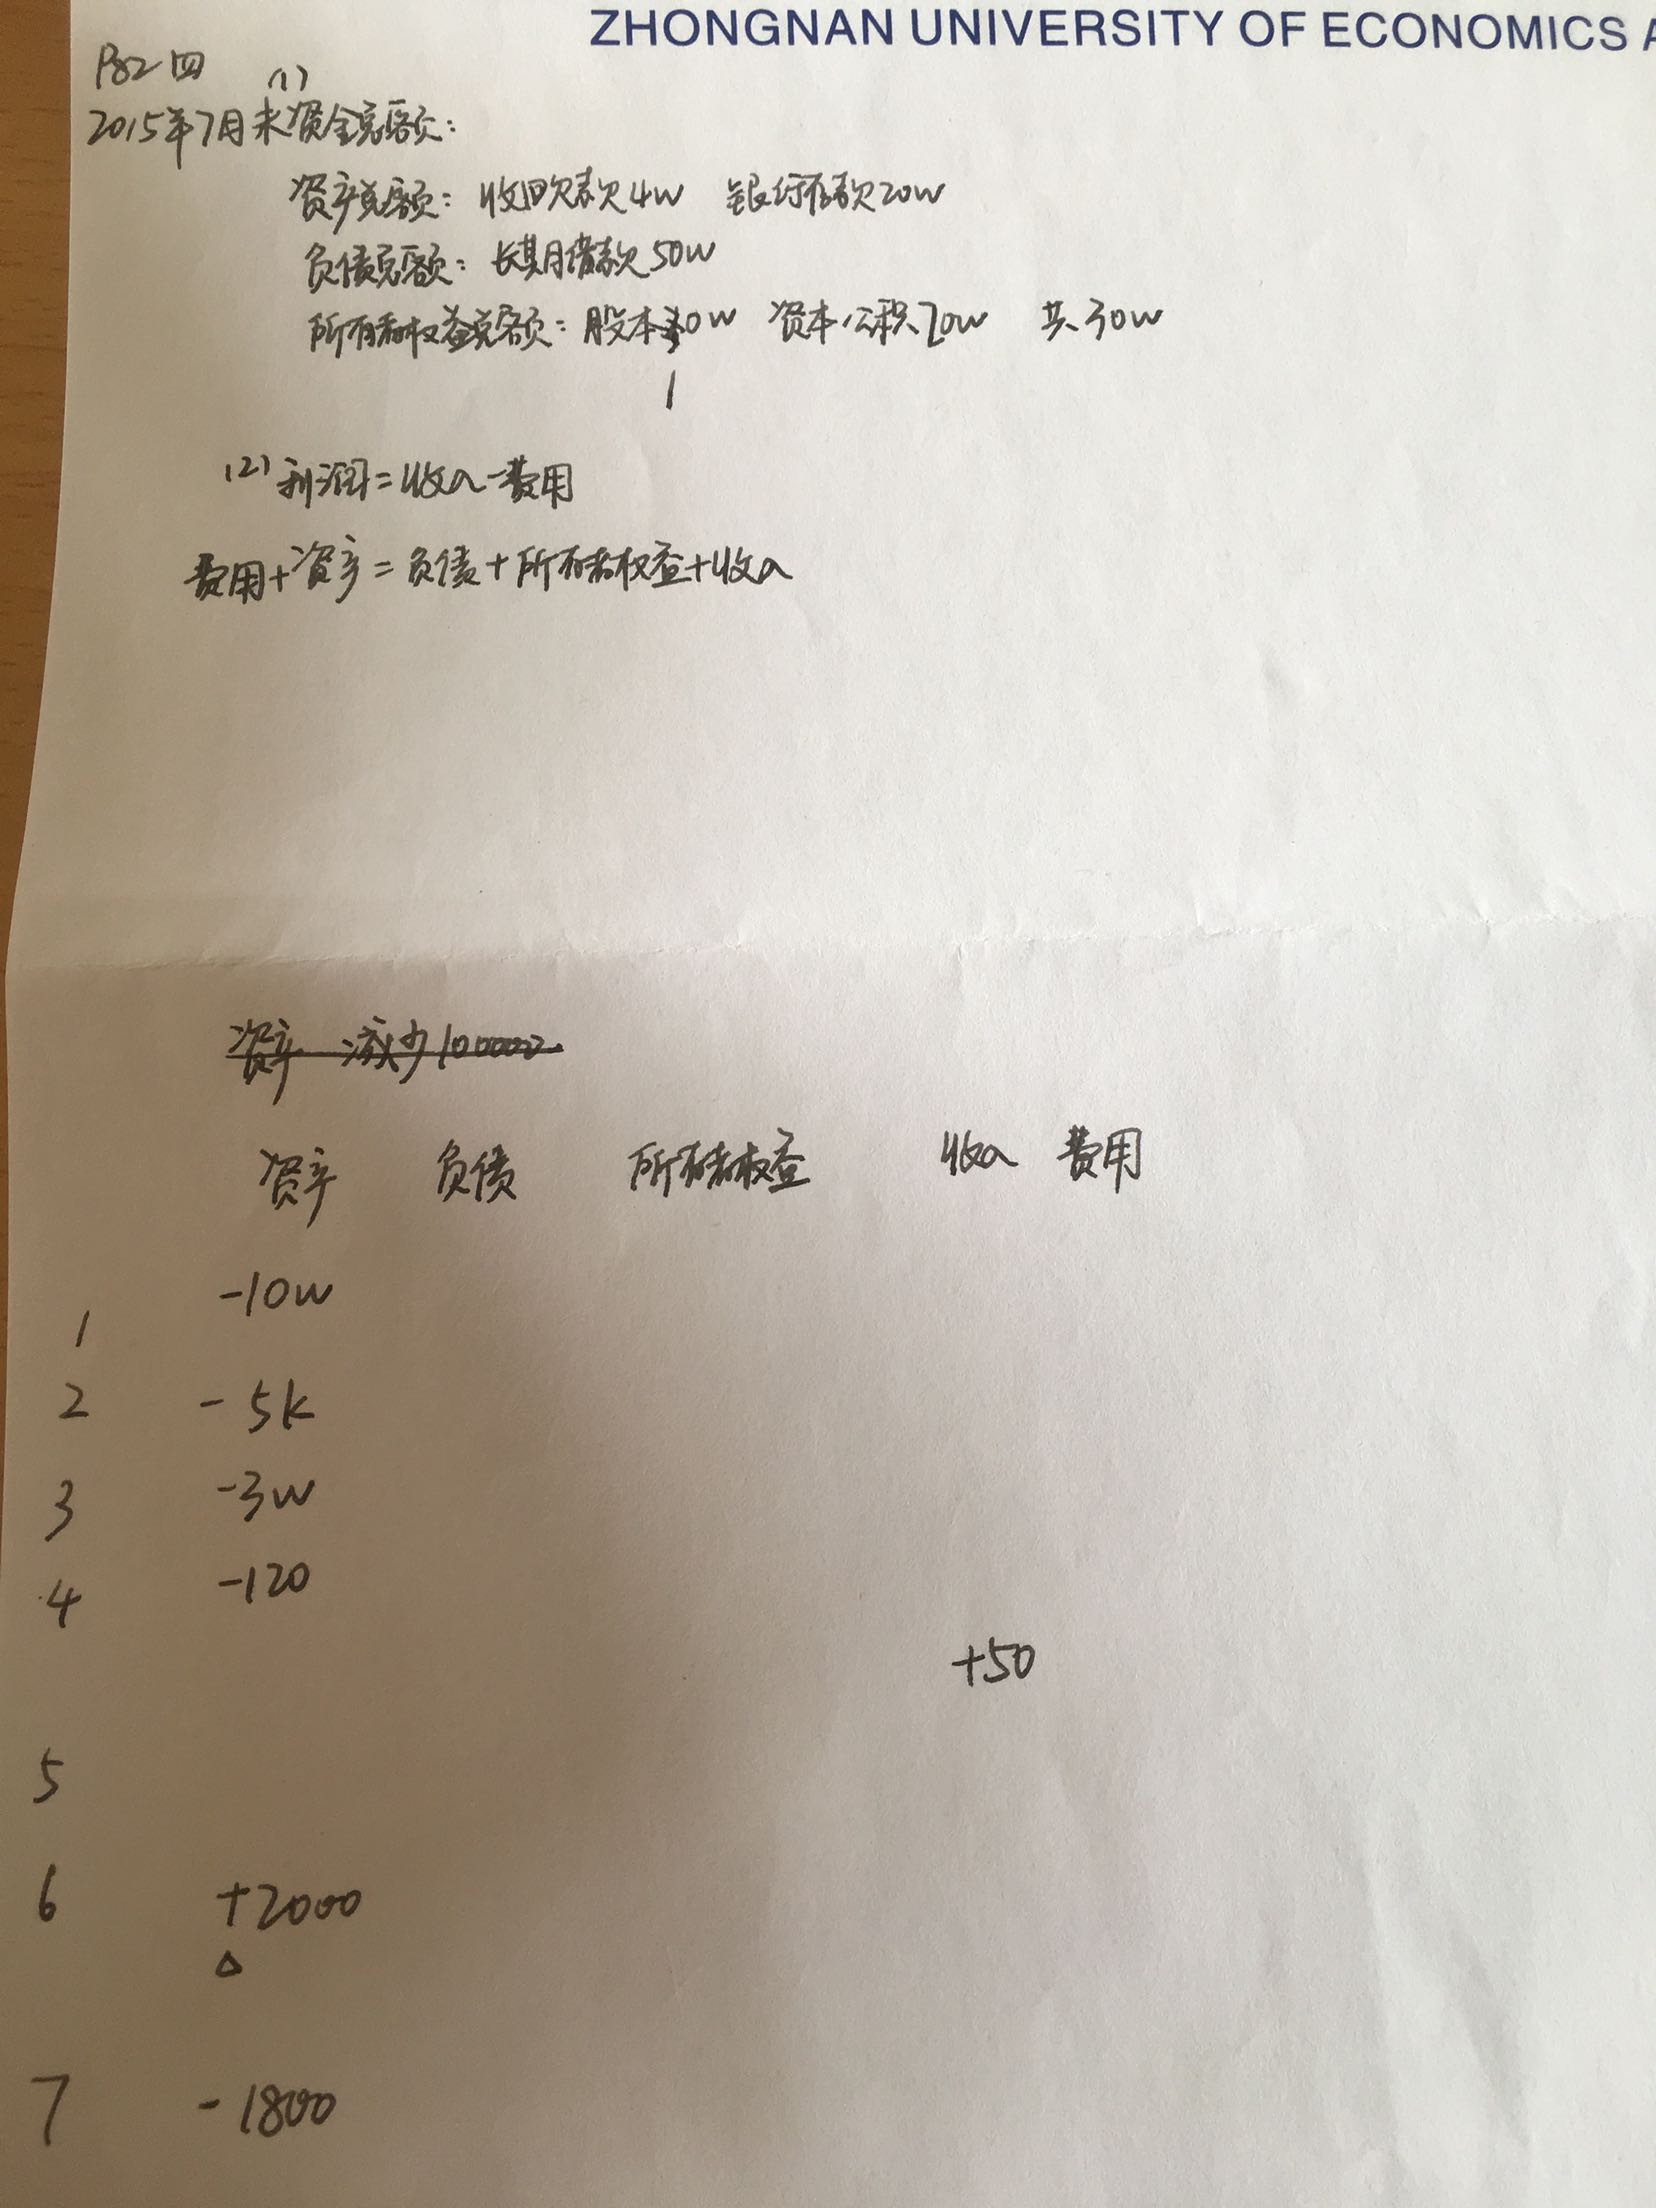 ZHONGNAN UNIVERSITY OF ECONOMICS A
P82 四 (1)
2015年7月末资金总额:
资产总额: 收回欠款4w 银行存款20w
负债总额: 长期借款50w
所有者权益总额: 股本10w 资本公积20w 共30w
(2) 利润=收入-费用
费用+资产=负债+所有者权益+收入
资产 减少100000
资产 负债 所有者权益 收入 费用
1 -10w
2 -5k
3 -3w
4 -120
+50
5
6 +2000
△
7 -1800